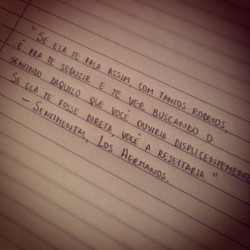 "Se ela te fala assim, com tantos rodeios,
é pra te seduzir e te ver buscando o
sentido daquilo que você ouviria displicentemente.
Se ela te fosse direta, você a rejeitaria."
- Sentimental, Los Hermanos.